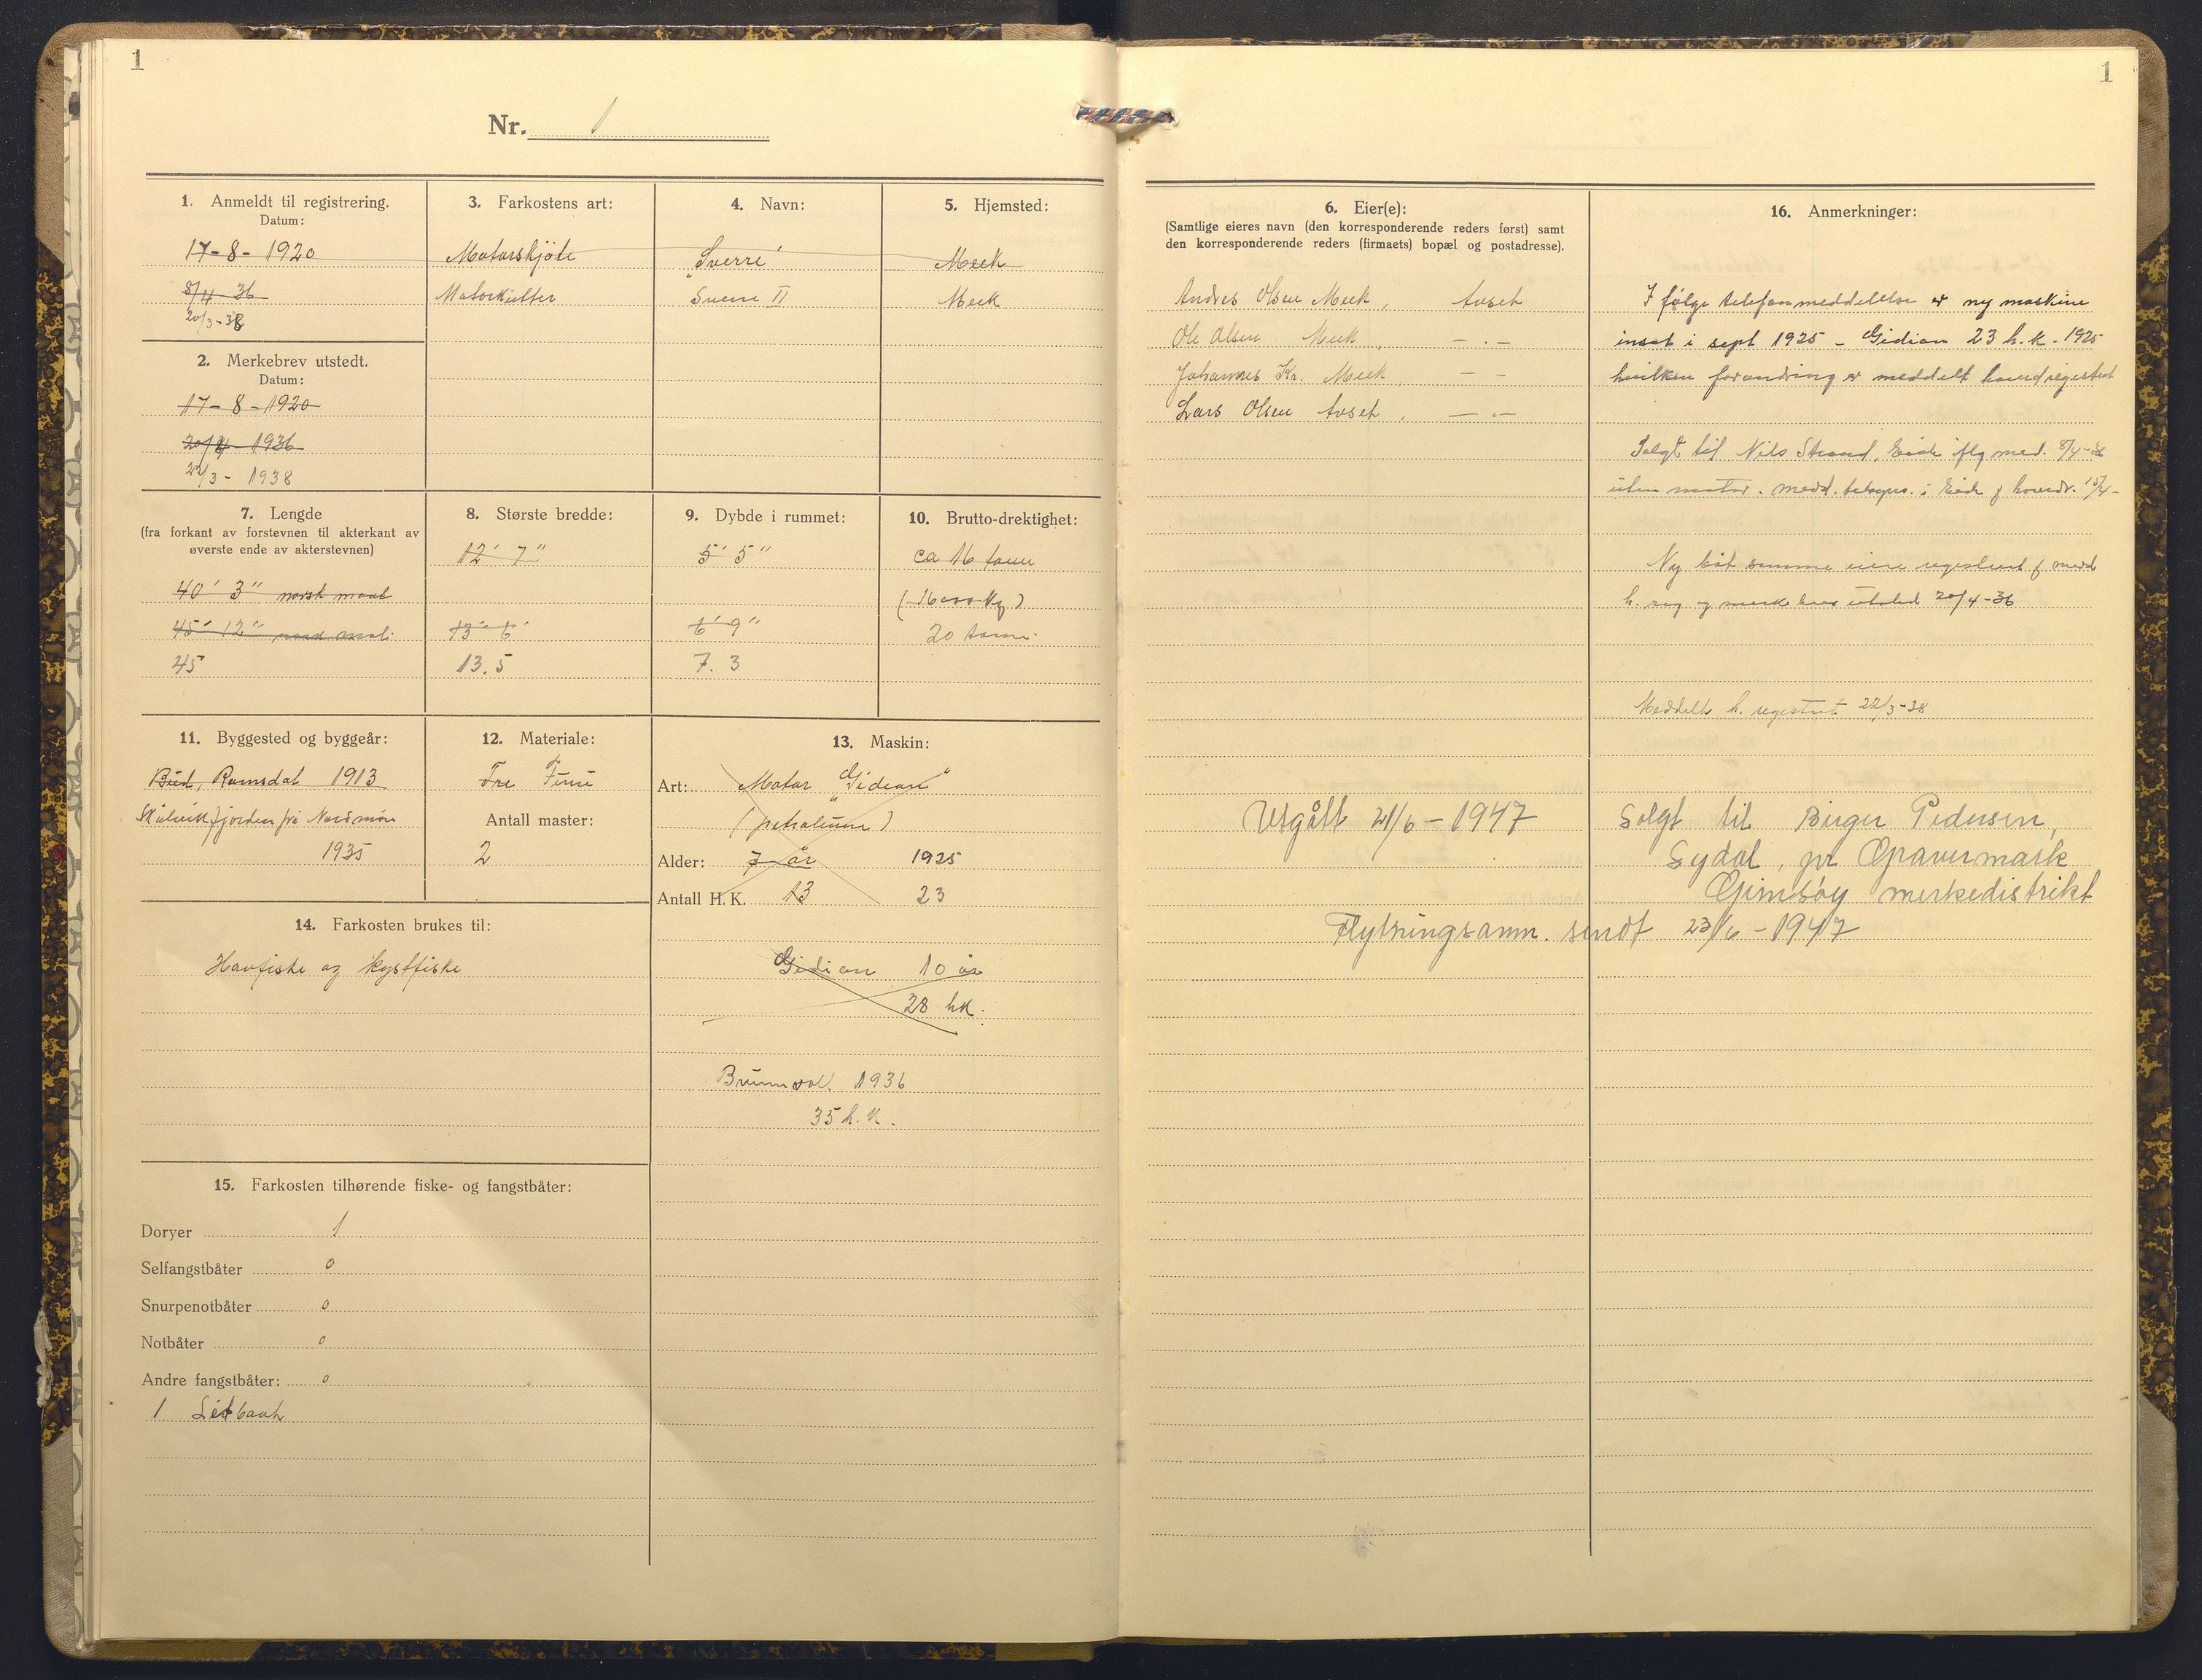 1
Nr. 1
1. Anmeldt til registrering.
Datum:
17-8-1920
8/4 36
20/3-38
2. Merkebrev utstedt.
Datum:
17-8-1920
20/4 1936
22/3- 1938
3. Farkostens art:
Motorskjöite
Motorkutter
4. Navn:
"Sverre"
Sverre II
5. Hjemsted:
Meek
Meek
7. Lengde
(fra forkant av forstevnen til akterkant av
øverste ende av akterstevnen)
40' 3" norsk maal
45' 12" norsk maal.
45
8. Største bredde:
12' 7"
13" 6'
13.5
9. Dybde i rummet:
5' 5"
6' 9"
7. 3
10. Brutto-drektighet:
ca 16 tonn
(16000 kg)
20 tonn.
11. Byggested og byggeår:
Bud, Romsdal 1913
fjorden på Nordmøre
1935
12. Materiale:
Tre Furu
Antall master:
2
13. Maskin:
Art: Motor "Gidion"
(petroleum)
Alder: 7 år 1925
Antall H. K. 13 23
Gidion 10 år
28 hk.
Brunvoll 1936
35 h.k.
14. Farkosten brukes til:
Havfiske og kystfiske
15. Farkosten tilhørende fiske- og fangstbåter:
Doryer 1
Selfangstbåter 0
Snurpenotbåter 0
Notbåter 0
Andre fangstbåter: 0
1
1
6. Eier(e):
(Samtlige eieres navn (den korresponderende reders først) samt
den korresponderende reders (firmaets) bopæl og postadresse).
Andres Olsen Meek, Aoset
Ole Olsen Meek, — . —
Johannes Kr. Meek — —
Lars Olsen Aoset, — . —
Utgått 21/6-1947
16. Anmerkninger:
I følge telefonmeddelelse er ny maskine
insat i sept 1925 - Gidion 23 h.k. - 1925
hvilken forandring er meddelt hovedregistret
Solgt til Nils Strand, Eide iflg med. 8/4-36
uten motor. medd. i Eide
Ny båt samme eiere registrert medd
h. reg og merkebrev utsted 20/4-36
Meddelt h. registret 22/3-38
Solgt til Birger Pedersen,
Sydal, pr Gravermark
Gimsøy merkedistrikt
Flytningsanm. sendt 23/6-1947